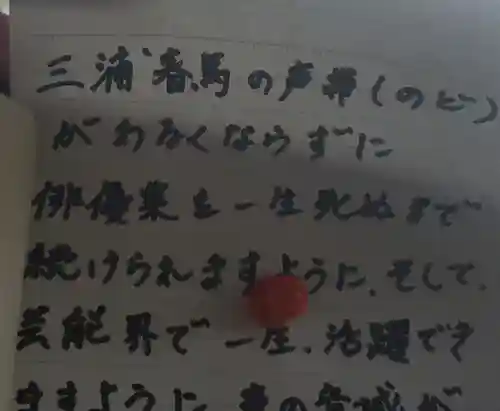 三浦春馬の声帯(のど)
がわるくならずに
俳優業を一生死ぬまで
続けられますように、そして、
芸能界で一生、活躍でき
ますように、